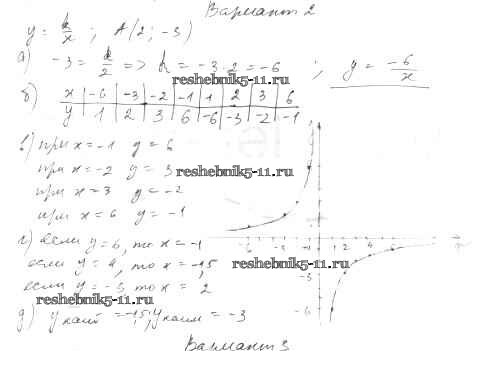 Вариант 2
y = k/x ; A(2; -3)
а) -3 = k/2 => k = -3·2 = -6 ; y = -6/x
reshebnik5-11.ru
б) x | -6 | -3 | -2 | -1 | 1 | 2 | 3 | 6
y | 1 | 2 | 3 | 6 | -6 | -3 | -2 | -1
в) при x = -1 y = 6
при x = -2 y = 3
reshebnik5-11.ru
при x = 3 y = -2
при x = 6 y = -1
г) если y = 6, то x = -1
если y = 4, то x = -1,5
reshebnik5-11.ru
если y = -3 то x = 2
reshebnik5-11.ru
д) y наиб = -1,5; y наим = -3
-6 2 4 6
-3
-6
Вариант 3